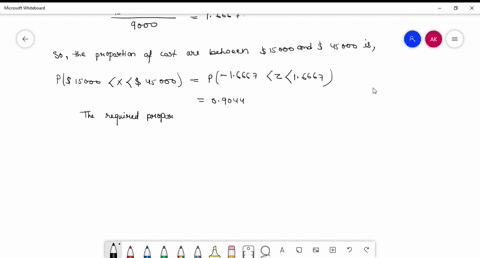 Microsoft Whiteboard
9000 = 1.6667.
AK
So, the proportion of cost are between $15000 and $ 45000 is,
P($15000 < X < $45000) = P(-1.6667 < Z < 1.6667)
= 0.9044
The required propor